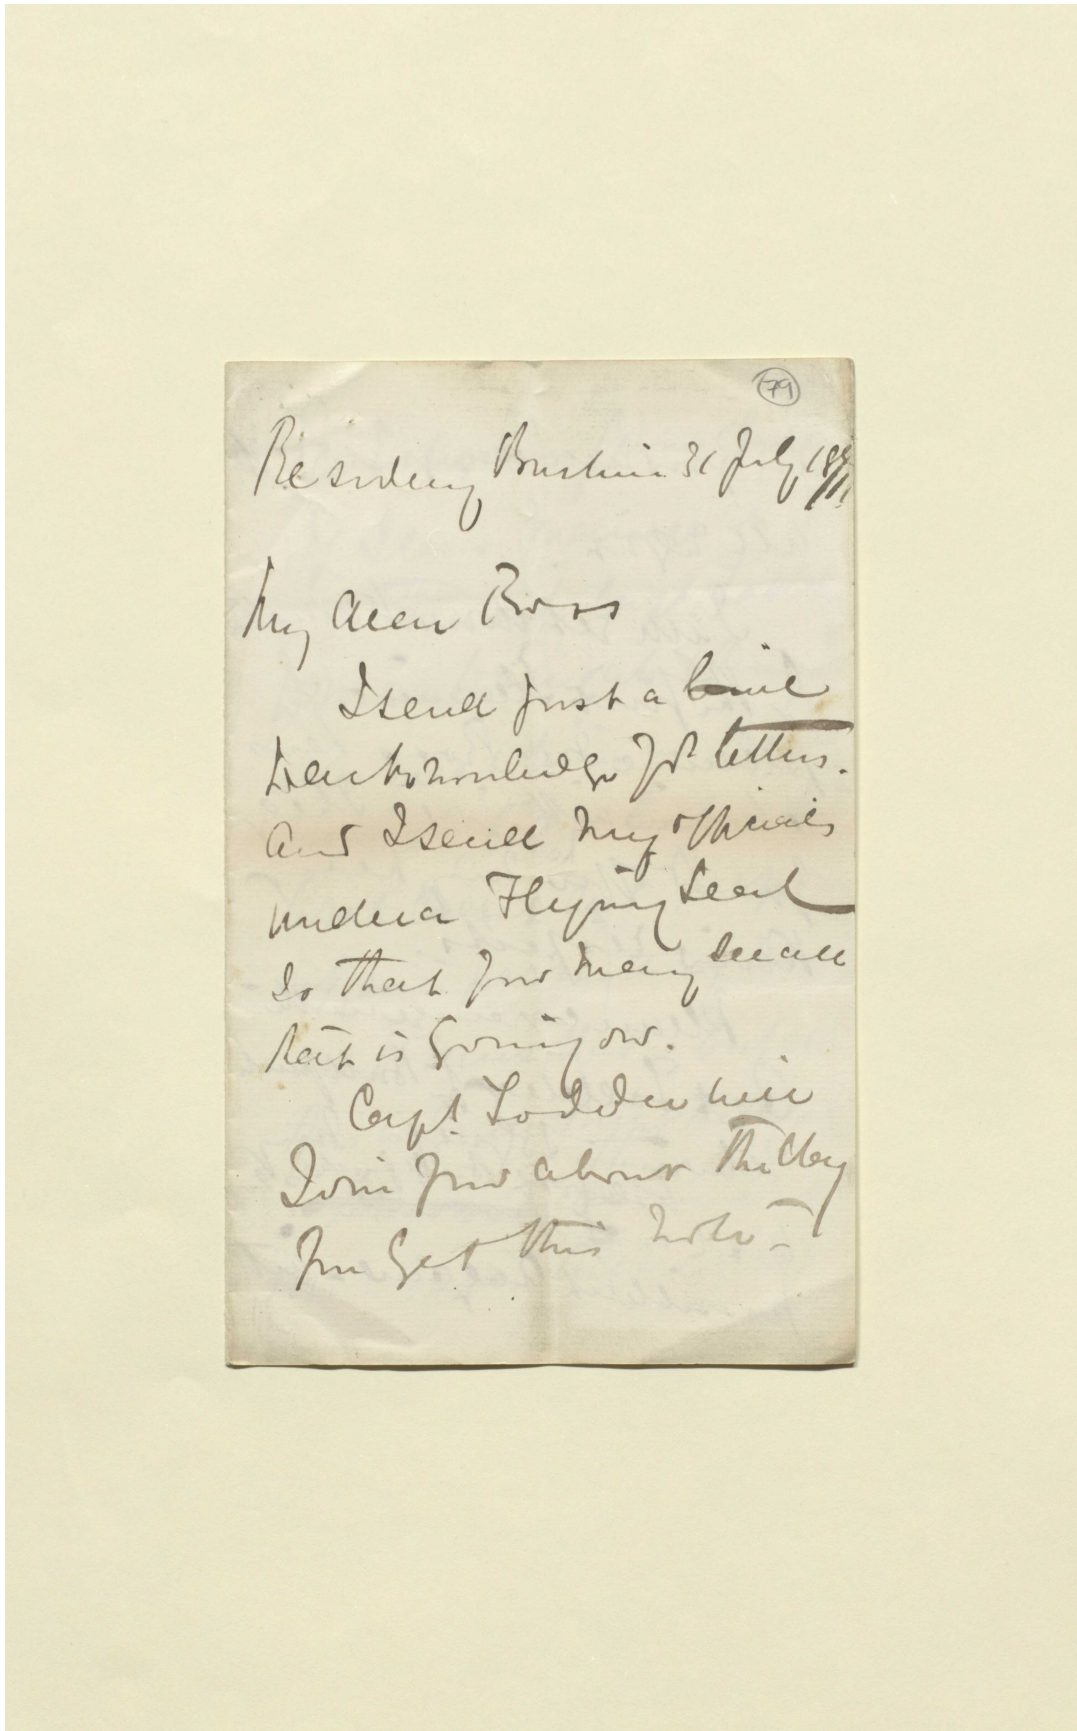 79
Residency Bushire 31 July
My dear Ross
I send just a line
to acknowledge yr letters.
And I send my officials
under a Flying Seal
so that you may see all
that is going on.
Capt.
Join you about the day
you get this note –